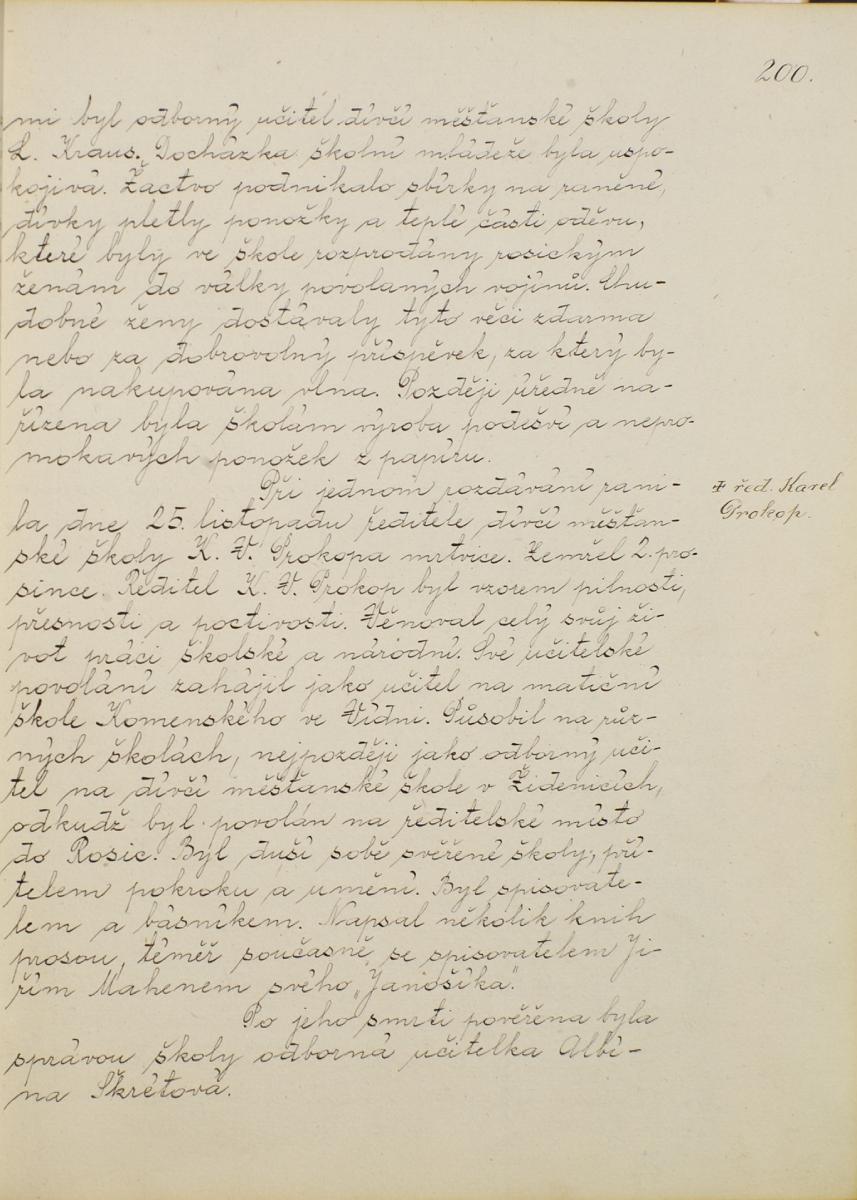 200.
mi byl odborný učitel dívčí měšťanské školy
L. Kraus. Docházka školní mládeže byla uspo-
kojivá. Žactvo podnikalo sbírky na raněné,
dívky pletly ponožky a teplé části oděvu,
které byly ve škole rozprodány rosickým
ženám do války povolaných vojínů. Chu-
dobné ženy dostávaly tyto věci zdarma
nebo za dobrovolný příspěvek, za který by-
la nakupována vlna. Později úředně na-
řízena byla školám výroba podešví a nepro-
mokavých ponožek z papíru.
Při jednom rozdávání rani-
la dne 25. listopadu ředitele dívčí měšťan-
ské školy K. V. Prokopa mrtvice. Zemřel 2. pro-
since. Ředitel K. V. Prokop byl vzorem pilnosti,
přesnosti a poctivosti. Věnoval celý svůj ži-
vot práci školské a národní. Své učitelské
povolání zahájil jako učitel na matiční
škole Komenského ve Vídni. Působil na růz-
ných školách, nejpozději jako odborný uči-
tel na dívčí měšťanské škole v Židenicích,
odkudž byl povolán na ředitelské místo
do Rosic. Byl duší sobě svěřené školy, pří-
telem pokroku a umění. Byl spisovate-
lem a básníkem. Napsal několik knih
prosou, téměř současně se spisovatelem Ji-
řím Mahenem svého „Janošíka“.
Po jeho smrti pověřena byla
správou školy odborná učitelka Albí-
na Škrétová.
✝ řed. Karel
Prokop.